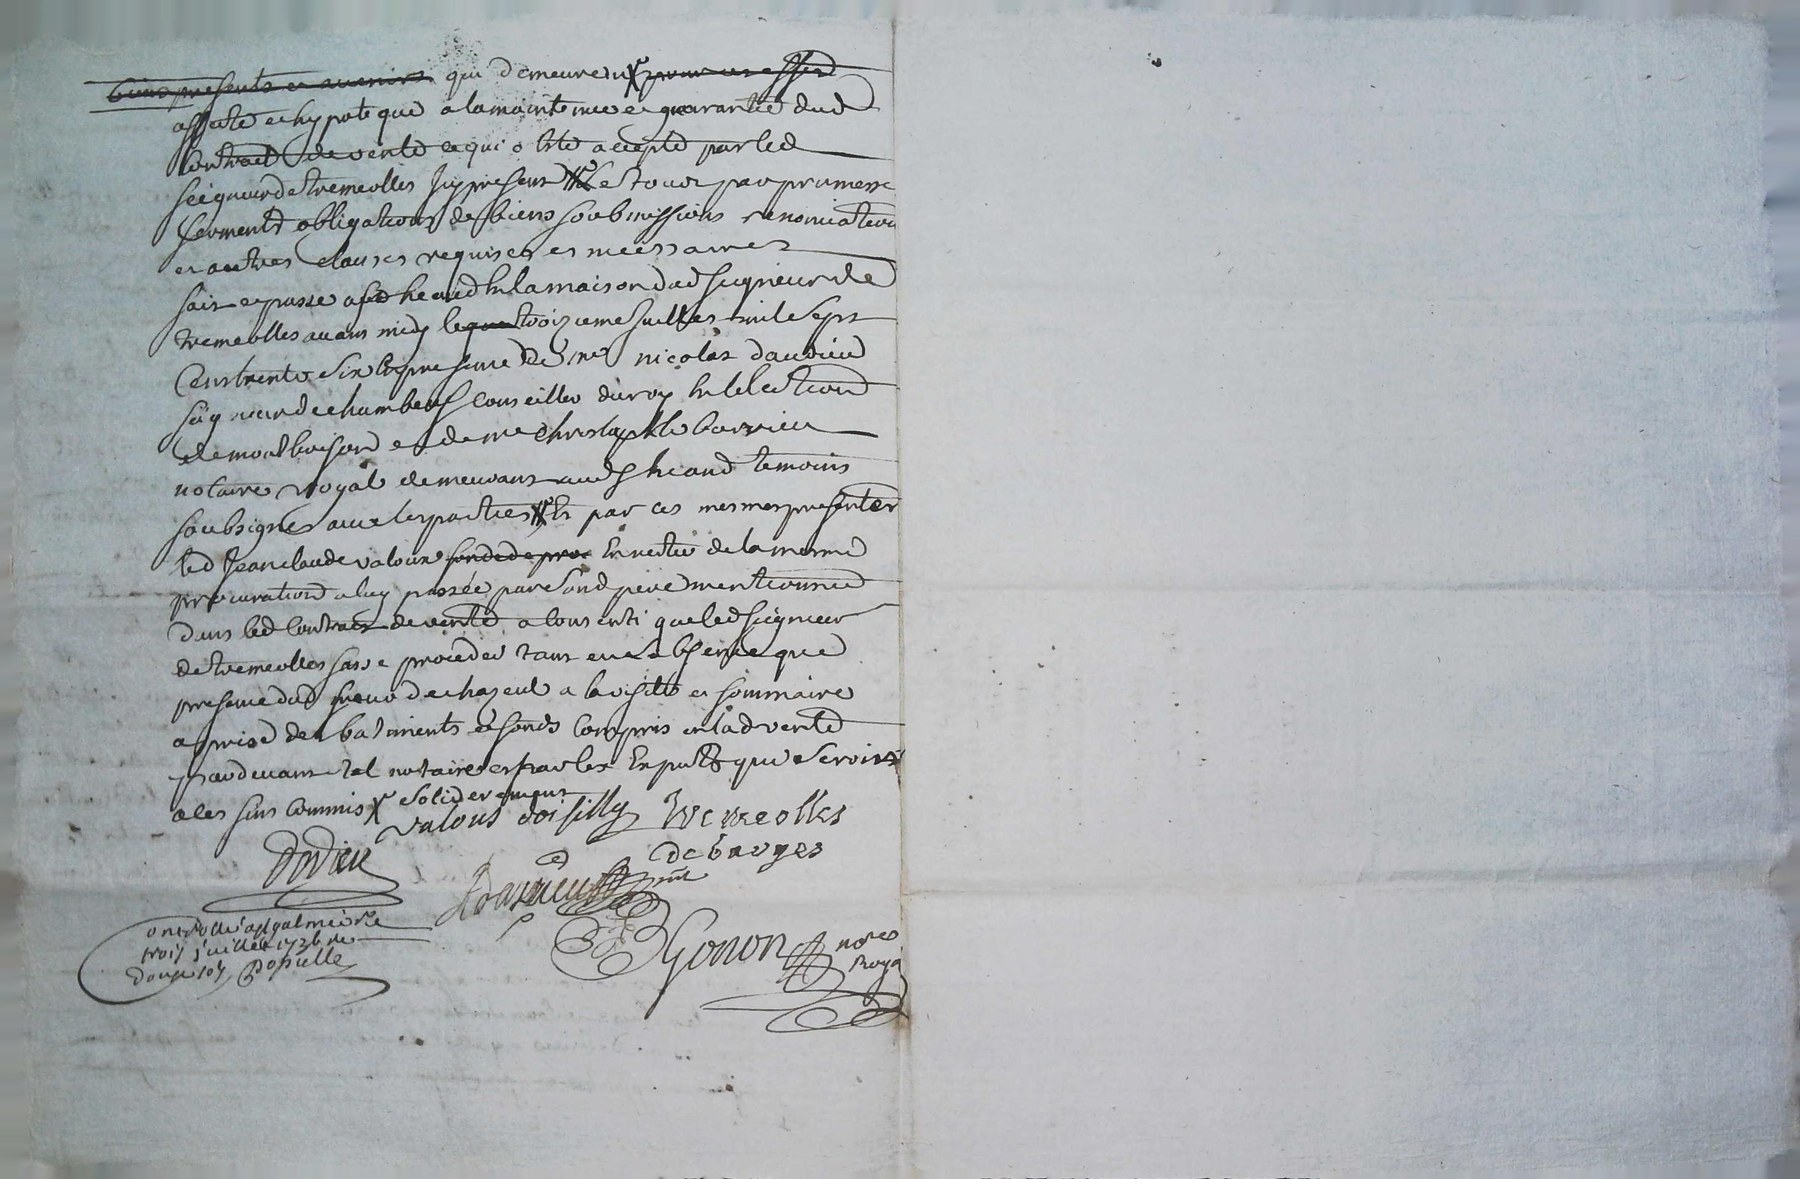 biens presents et avenirs qui demeureront pour cet effet
affecté et hypotequé a la maintenue et guarantie dud
contract de vente ce qui a été accepté par led
seigneur de tremeolles icy present et tout par promesse
serments obligations de biens soubmissions renonciations
et autres clauses requises et necessaires
fait et passé a heand en la maison dud seigneur de
tremeolles avant midy le troizieme juillet mil sept
cent trente six en presence de me nicolas daudieu
seigneur de chambeuf conseiller du roy en l election
de montbrison et de me christophle barrieu
notaire royal demeurant aud heand temoins
soubsignes avec les parties et par ces mesmes presentes
led Jean claude valous fondé de pro en vertu de la meme
procuration a luy passée par sond pere mentionnée
dans led contract de vente a consenti que led seigneur
de tremeolles fasse proceder tant en absence que
presence dud sieur de chazeul a la visitte et sommaire
aprise des batiments et fonds compris en lad vente
par devant tel notaire et par les expertz qui seront
a ces fins commis solidairement
valous doisilly tremeolles
de barges
Dodieu
Barrieu
controllé a st galmier le
trois juillet 1736 Recu
douze sols
Gonon nore
Royal